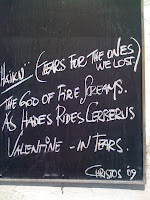 HAIKU: (TEARS FOR THE ONES
WE LOST)
THE GOD OF FIRE SCREAMS.
AS HADES RIDES CERBERUS
VALENTINE - IN TEARS.
CHRISTOS '09